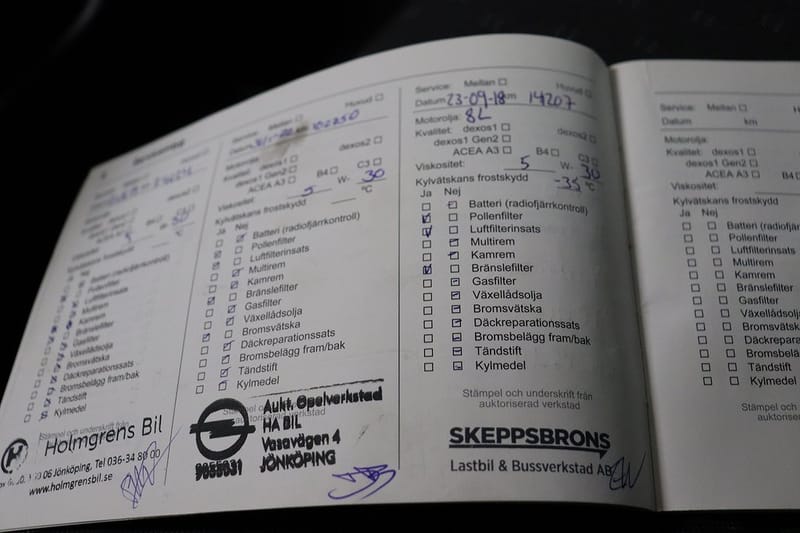 Holmgrens Bil
06 Jönköping, Tel 036-34 80 00
www.holmgrensbil.se
Batteri (radiofjärrkontroll)
Pollenfilter
Luftfilterinsats
Multirem
Kamrem
Bränslefilter
Gasfilter
Växellådsolja
Bromsvätska
Däckreparationssats
Bromsbelägg fram/bak
Tändstift
Kylmedel
Stämpel och underskrift från
Service: Mellan Huvud
Motorolja:
Kvalitet: dexos1 dexos2
dexos1 Gen2
ACEA A3 B4 C3
Viskositet: 5 W- 30
Kylvätskans frostskydd °C
Ja Nej
Batteri (radiofjärrkontroll)
Pollenfilter
Luftfilterinsats
Multirem
Kamrem
Bränslefilter
Gasfilter
Växellådsolja
Bromsvätska
Däckreparationssats
Bromsbelägg fram/bak
Tändstift
Kylmedel
Aukt. Opelverkstad
HA BIL
Vasavägen 4
JÖNKÖPING
Service: Mellan Huvud
Datum 23-09-18 km 14207
Motorolja: 8L
Kvalitet: dexos1 dexos2
dexos1 Gen2
ACEA A3 B4 C3
Viskositet: 5 W- 30
Kylvätskans frostskydd -35 °C
Ja Nej
Batteri (radiofjärrkontroll)
Pollenfilter
Luftfilterinsats
Multirem
Kamrem
Bränslefilter
Gasfilter
Växellådsolja
Bromsvätska
Däckreparationssats
Bromsbelägg fram/bak
Tändstift
Kylmedel
Stämpel och underskrift från
auktoriserad verkstad
SKEPPSBRONS
Lastbil & Bussverkstad AB
Service: Mellan
Datum km
Motorolja:
Kvalitet: dexos1
dexos1 Gen2
ACEA A3 B4
Viskositet:
Kylvätskans frostskydd
Ja Nej
Batteri (radiofjärrko
Pollenfilter
Luftfilterinsats
Multirem
Kamrem
Bränslefilter
Gasfilter
Växellådsolja
Bromsvätska
Däckreparations
Bromsbelägg
Tändstift
Kylmedel
Stämpel och
auktoris